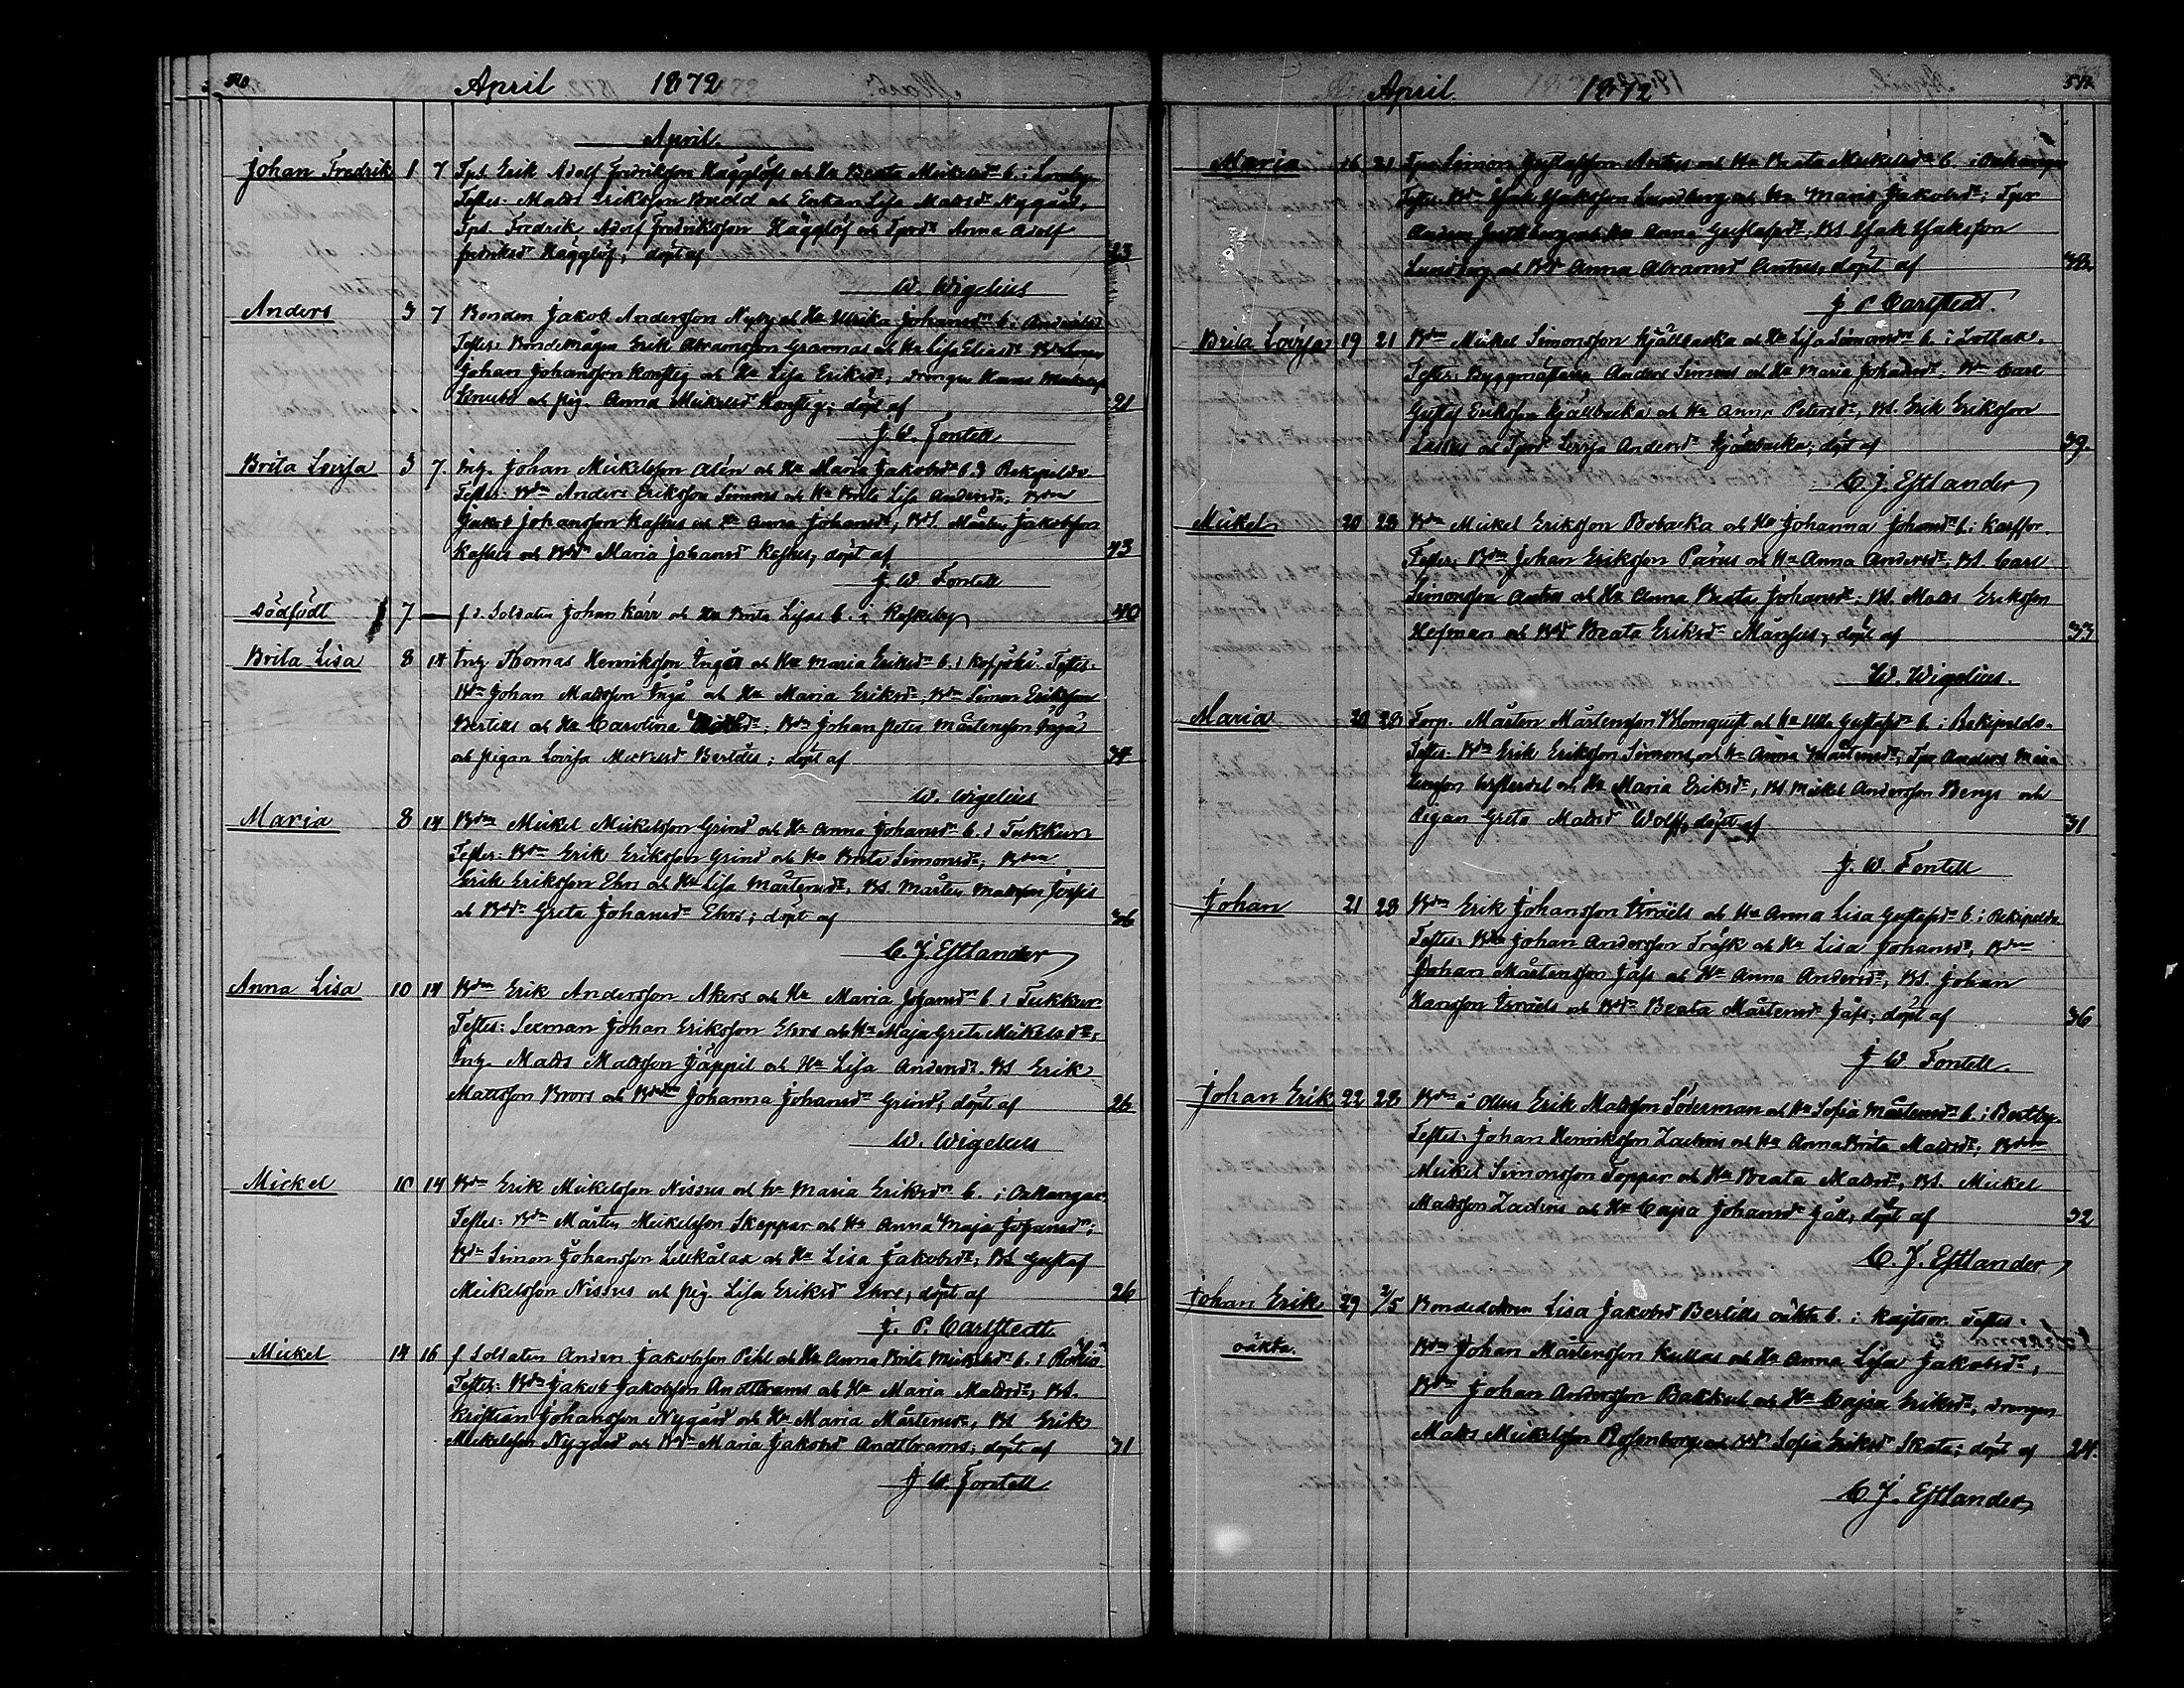 April 1872
April.
Johan Fredrik 1 7 Tpl. Erik Adolf Fredriksson Hägglöf och Hu Beata Mickelsdr b. i Loreby
Testes: Matts Eriksson Budd och Enkan Lisa Mattsdr Nygård,
Tpl. Fredrik Adolf Fredriksson Hägglöf och Tprdr Anna Adolf
Fredriksdr Hägglöf; döpt af 23
W. Wigelius
Anders 3 7 Bonden Jakob Andersson Nyby och Hu Ulrika Johansdr b. i
Testes: Bondemågen Erik Abramsson Grannas och Hu Lisa Eliasdr
Johan Johansson Konstig och Hu Lisa Eriksdr; drengen Hans
och pig. Anna Mickelsdr Konstig; döpt af 21
J. W. Fontell
Brita Lovisa 3 7 Inh. Johan Mickelsson Alén och Hu Maria Jakobsdr b. i Rekipeldo
Testes: Bdn Anders Eriksson Simons och Hu Brita Lisa Andersdr; Bdn
Jakob Johansson Kastus och Hu Anna Johansdr, BS. Mårten Jakobsson
Kastus och Bdr Maria Johansdr Kastus, döpt af 43
J. W. Fontell
Dödfödt 7 — f. d. Soldaten Johan Kärr och Hu Brita Lisas b. i Roskeby 40
Brita Lisa 8 14 Inh. Thomas Henriksson Ingå och Hu Maria Eriksdr b. i Testes:
Bdn Johan Mattsson Ingå och Hu Maria Eriksdr, Bdn Simon Eriksson
Bertills och Hu Carolina; Bdn Johan Peter Mårtensson Ingå
och pigan Lovisa Mickelsdr Bertills; döpt af 34
W. Wigelius
Maria 8 14 Bdn Mickel Mickelsson Grind och Hu Anna Johansdr b. i Tukkur
Testes: Bdn Erik Eriksson Grind och Hu Brita Simonsdr; Bdn
Erik Eriksson Ehrs och Hu Lisa Mårtensdr, BS. Mårten Mattsson
och Bdr Greta Johansdr Ehrs; döpt af 36
C. J. Estlander
Anna Lisa 10 14 Bdn Erik Andersson Akers och Hu Maria Johansdr b. i Tukkur
Testes: Sexman Johan Eriksson Ehrs och Hu Maja Greta Mickelsdr;
Inh. Matts Mattsson Jäppil och Hu Lisa Andersdr. BS Erik
Mattsson Brors och Bdr Johanna Johansdr Grind; döpt af 26
W. Wigelius
Mickel 10 14 Bdn Erik Mickelsson Nissus och Hu Maria Eriksdr b. i Oxkangar
Testes: Bdn Mårten Mickelsson Skeppar och Hu Anna Maja Johansdr;
Bdn Simon Johansson Lillkålax och Hu Lisa Jakobsdr; BS Gustaf
Mickelsson Nissus och pig. Lisa Eriksdr Ehrs; döpt af 26
J. P. Carlstedt
Mickel 14 16 f. Soldaten Anders Jakobsson Pihl och Hu Anna Brita Mickelsdr b. i Rökiö
Testes: Bdn Jakob Jakobsson Andtbrams och Hu Maria Mattsdr; BS.
Kristian Johansson Nygård och Hu Maria Mårtensdr, BS Erik
Mickelsson Nygård och Bdr Maria Jakobsdr Andtbrams; döpt af 31
J. W. Fontell
April. 1872
Maria 16 21 Tpr Simon Gustafsson Antus och Hu Beata Mickelsdr b. i Oxkangar
Testes: Bdn Isak Isaksson Lundberg och Hu Maria Jakobsdr; Tpr
Anders och Hu Anna Gustafsdr, BS Isak Isaksson
Lundberg och Bdr Anna Abramsdr Antus, döpt af 38.
J P Carlstedt.
Brita Lovisa 19 21 Bdn Mickel Simonsson Kjällbacka och Hu Lisa Simonsdr b. i Lotlax.
Testes: Byggmästaren Anders Simons och Hu Maria Johansdr; Bdn Carl
Gustaf Eriksson Kjällbacka och Hu Anna Petersdr, BS. Erik Eriksson
Lassus och Tprdr Lovisa Andersdr Kjällbacka; döpt af 39.
C. J. Estlander
Mickel 20 28 Bdn Mickel Eriksson Bobacka och Hu Johanna Johansdr b. i Karffor.
Testes: Bdn Johan Eriksson Pärus och Hu Anna Andersdr; BS. Carl
Simonsson Antus och Hu Anna Beata Johansdr; BS. Matts Eriksson
Hofman och Bdr Beata Eriksdr Månsus; döpt af 33
W. Wigelius.
Maria 20 28 Torp. Mårten Mårtensson Blomquist och Hu Ulla Gustafsdr b. i Rekipeldo.
Testes: Bdn Erik Eriksson Simons och Hu Anna Mårtensdr; Tpr Anders Mår-
tensson och Hu Maria Eriksdr, BS Mickel Andersson Bengs och
Pigan Greta Mattsdr Wolff; döpt af 31
J. W. Fontell
Johan 21 28 Bdn Erik Johansson Israels och Hu Anna Lisa Gustafsdr b. i Rekipeldo
Testes: Bdn Johan Andersson Träsk och Hu Lisa Johansdr, Bdn
Johan Mårtensson Jåfs och Hu Anna Andersdr, BS. Johan
Hansson Israels och Bdr Beata Mårtensdr Jåfs; döpt af 36
J W Fontell.
Johan Erik 22 28 Bdn å Ollus Erik Mattsson Söderman och Hu Sofia Mårtensdr b. i Bertby.
Testes: Johan Henriksson Zachris och Hu Anna Brita Mattsdr; Bdn
Mickel Simonsson Toppar och Hu Beata Mattsdr, BS. Mickel
Mattsson Zachris och Hu Cajsa Johansdr Gäll, döpt af 32
C. J. Estlander
Johan Erik 29 2/5 Bondedottren Lisa Jakobsdr Bertills oäkta b. i Kajtsor. Testes:
oäkta. Bdn Johan Mårtensson Kullas och Hu Anna Lisa Jakobsdr;
Bdn Johan Andersson Backull och Hu Cajsa Eriksdr, drengen
Matts Mickelsson Rosenborg och Bdr Sofia Eriksdr Skata; döpt af 24.
C J. Estlander